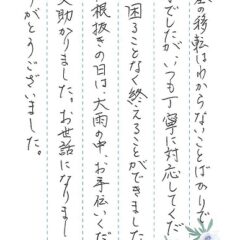 座の移転はわからないことばかりで
でしたが、いつも丁寧に対応してくだ
困ることなく終えることができました
根抜きの日は、大雨の中、お手伝いくだ
助かりました。お世話になりまし
がとうございました。